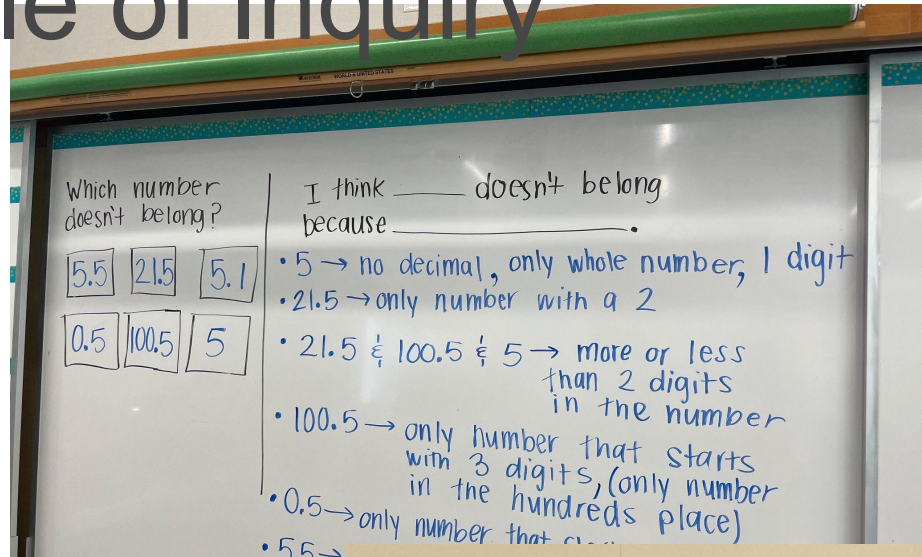 le of Inquiry
WORLD & UNITED STATES
Which number
doesn't belong?
5.5 21.5 5.1
0.5 100.5 5
I think ____ doesn't belong
because ____________.
• 5 → no decimal, only whole number, 1 digit
• 21.5 → only number with a 2
• 21.5 & 100.5 & 5 → more or less
than 2 digits
in the number
• 100.5 → only number that starts
with 3 digits, (only number
in the hundreds place)
• 0.5 → only number that
• 5.5 →